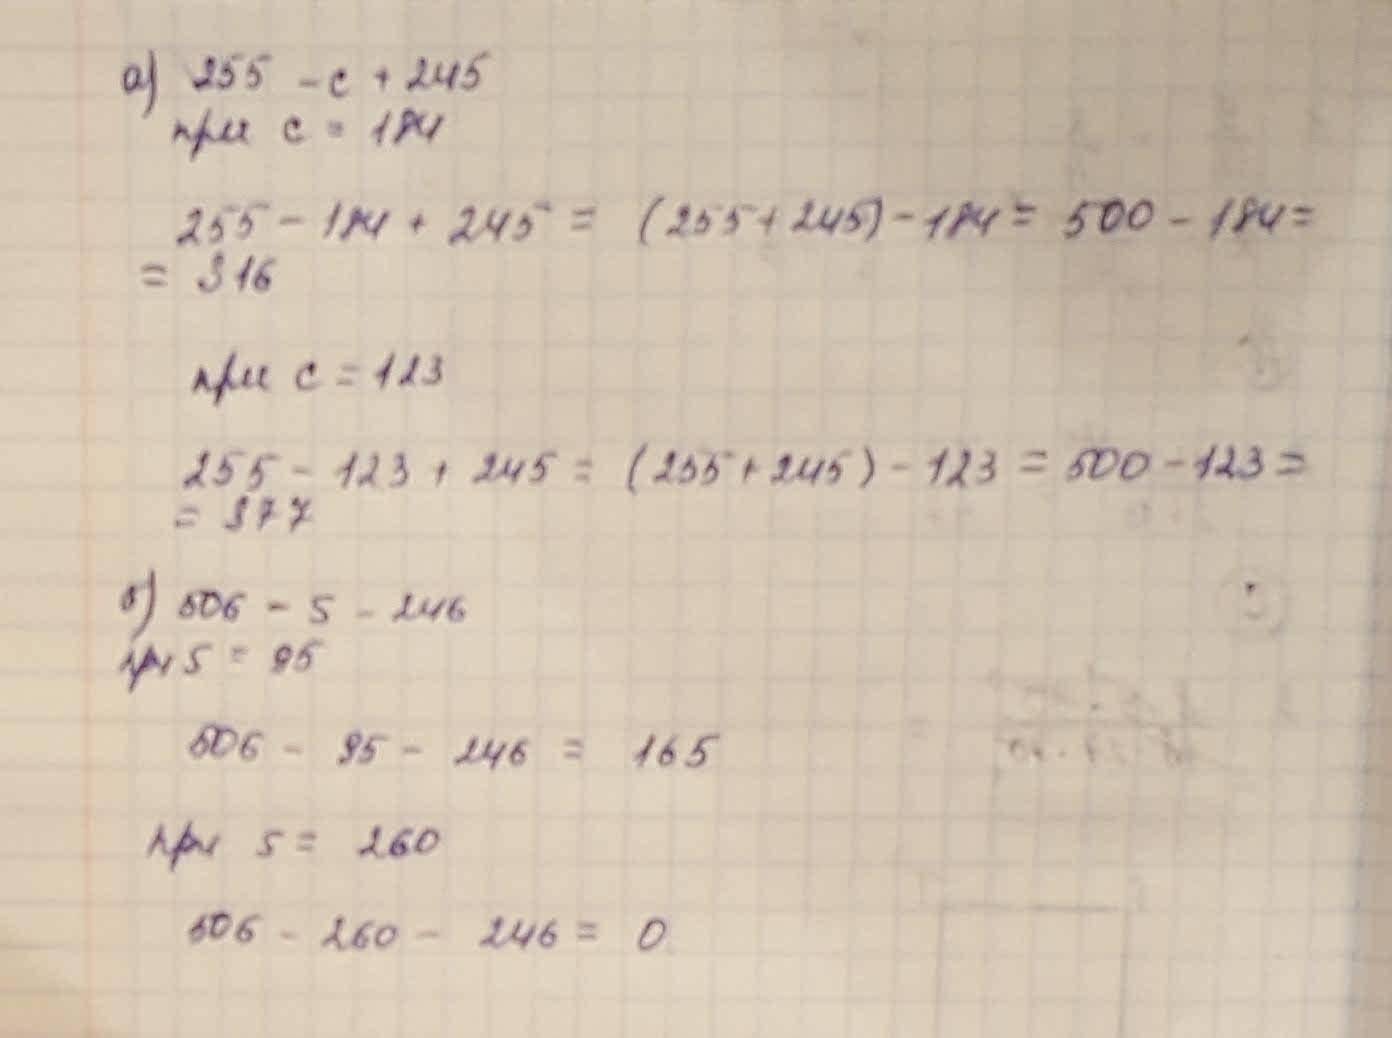 а) 255 - с + 245
при с = 184
255 - 184 + 245 = (255 + 245) - 184 = 500 - 184 =
= 316
при с = 123
255 - 123 + 245 = (255 + 245) - 123 = 500 - 123 =
= 377
б) 506 - s - 246
при s = 95
506 - 95 - 246 = 165
при s = 260
506 - 260 - 246 = 0